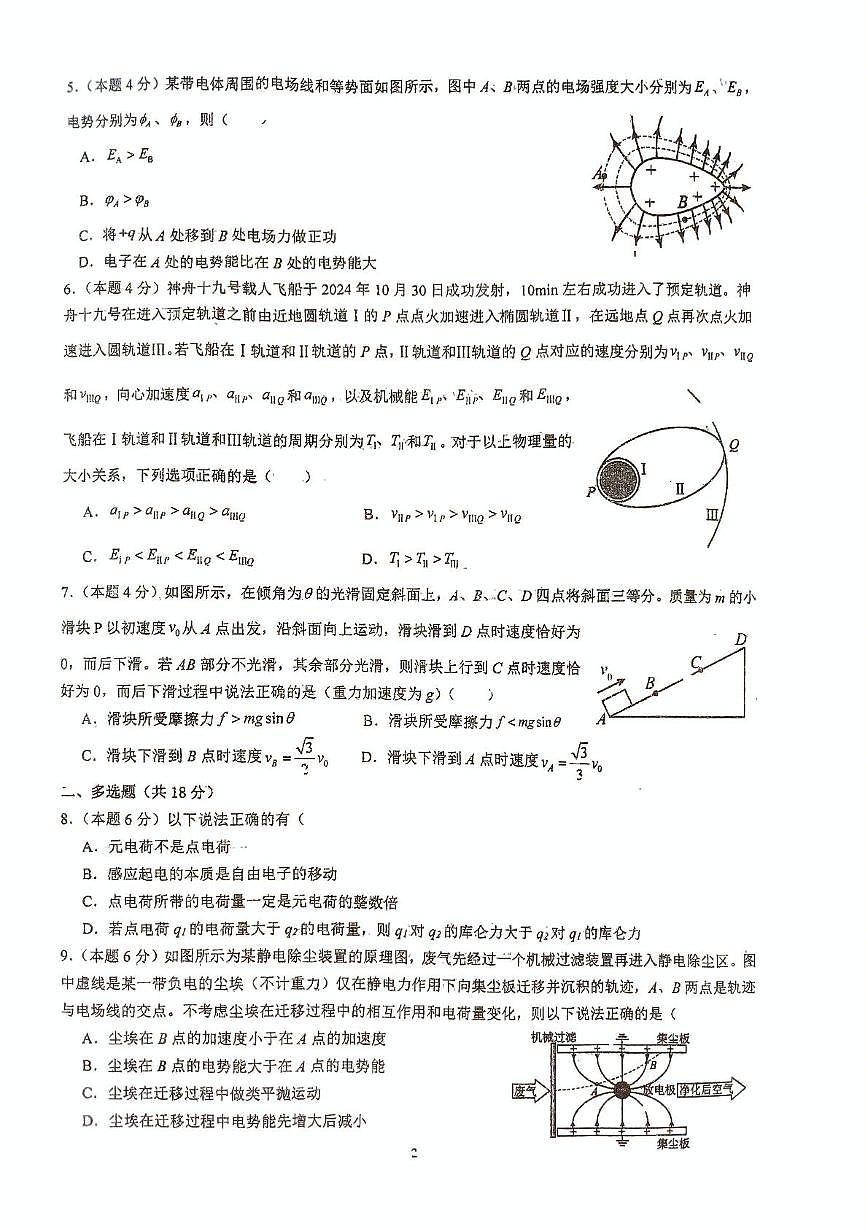 5.（本题4分）某带电体周围的电场线和等势面如图所示，图中A、B两点的电场强度大小分别为E_A、E_B，
电势分别为ϕ_A、ϕ_B，则（
A．E_A > E_B
B．φ_A > φ_B
C．将+q从A处移到B处电场力做正功
D．电子在A处的电势能比在B处的电势能大
A
B
6.（本题4分）神舟十九号载人飞船于2024年10月30日成功发射，10min左右成功进入了预定轨道。神
舟十九号在进入预定轨道之前由近地圆轨道Ⅰ的P点点火加速进入椭圆轨道Ⅱ，在远地点Q点再次点火加
速进入圆轨道Ⅲ。若飞船在Ⅰ轨道和Ⅱ轨道的P点，Ⅱ轨道和Ⅲ轨道的Q点对应的速度分别为v_ⅠP、v_ⅡP、v_ⅡQ
和v_ⅢQ，向心加速度a_ⅠP、a_ⅡP、a_ⅡQ和a_ⅢQ，以及机械能E_ⅠP、E_ⅡP、E_ⅡQ和E_ⅢQ，
飞船在Ⅰ轨道和Ⅱ轨道和Ⅲ轨道的周期分别为T_Ⅰ、T_Ⅱ和T_Ⅲ。对于以上物理量的
大小关系，下列选项正确的是（ ）
A．a_ⅠP > a_ⅡP > a_ⅡQ > a_ⅢQ
B．v_ⅡP > v_ⅠP > v_ⅢQ > v_ⅡQ
C．E_ⅠP < E_ⅡP < E_ⅡQ < E_ⅢQ
D．T_Ⅰ > T_Ⅱ > T_Ⅲ
P
Ⅰ
Ⅱ
Q
Ⅲ
7.（本题4分）如图所示，在倾角为θ的光滑固定斜面上，A、B、C、D四点将斜面三等分。质量为m的小
滑块P以初速度v₀从A点出发，沿斜面向上运动，滑块滑到D点时速度恰好为
0，而后下滑。若AB部分不光滑，其余部分光滑，则滑块上行到C点时速度恰
好为0，而后下滑过程中说法正确的是（重力加速度为g）（ ）
A．滑块所受摩擦力f > mg sinθ
B．滑块所受摩擦力f < mg sinθ
C．滑块下滑到B点时速度v_B = √3/3 v₀
D．滑块下滑到A点时速度v_A = √3/3 v₀
v₀
A
B
C
D
二、多选题（共18分）
8.（本题6分）以下说法正确的有（
A．元电荷不是点电荷
B．感应起电的本质是自由电子的移动
C．点电荷所带的电荷量一定是元电荷的整数倍
D．若点电荷q1的电荷量大于q2的电荷量，则q1对q2的库仑力大于q2对q1的库仑力
9.（本题6分）如图所示为某静电除尘装置的原理图，废气先经过一个机械过滤装置再进入静电除尘区。图
中虚线是某一带负电的尘埃（不计重力）仅在静电力作用下向集尘板迁移并沉积的轨迹，A、B两点是轨迹
与电场线的交点。不考虑尘埃在迁移过程中的相互作用和电荷量变化，则以下说法正确的是（
A．尘埃在B点的加速度小于在A点的加速度
B．尘埃在B点的电势能大于在A点的电势能
C．尘埃在迁移过程中做类平抛运动
D．尘埃在迁移过程中电势能先增大后减小
机械过滤
集尘板
废气
A
B
放电极
净化后空气
集尘板
2